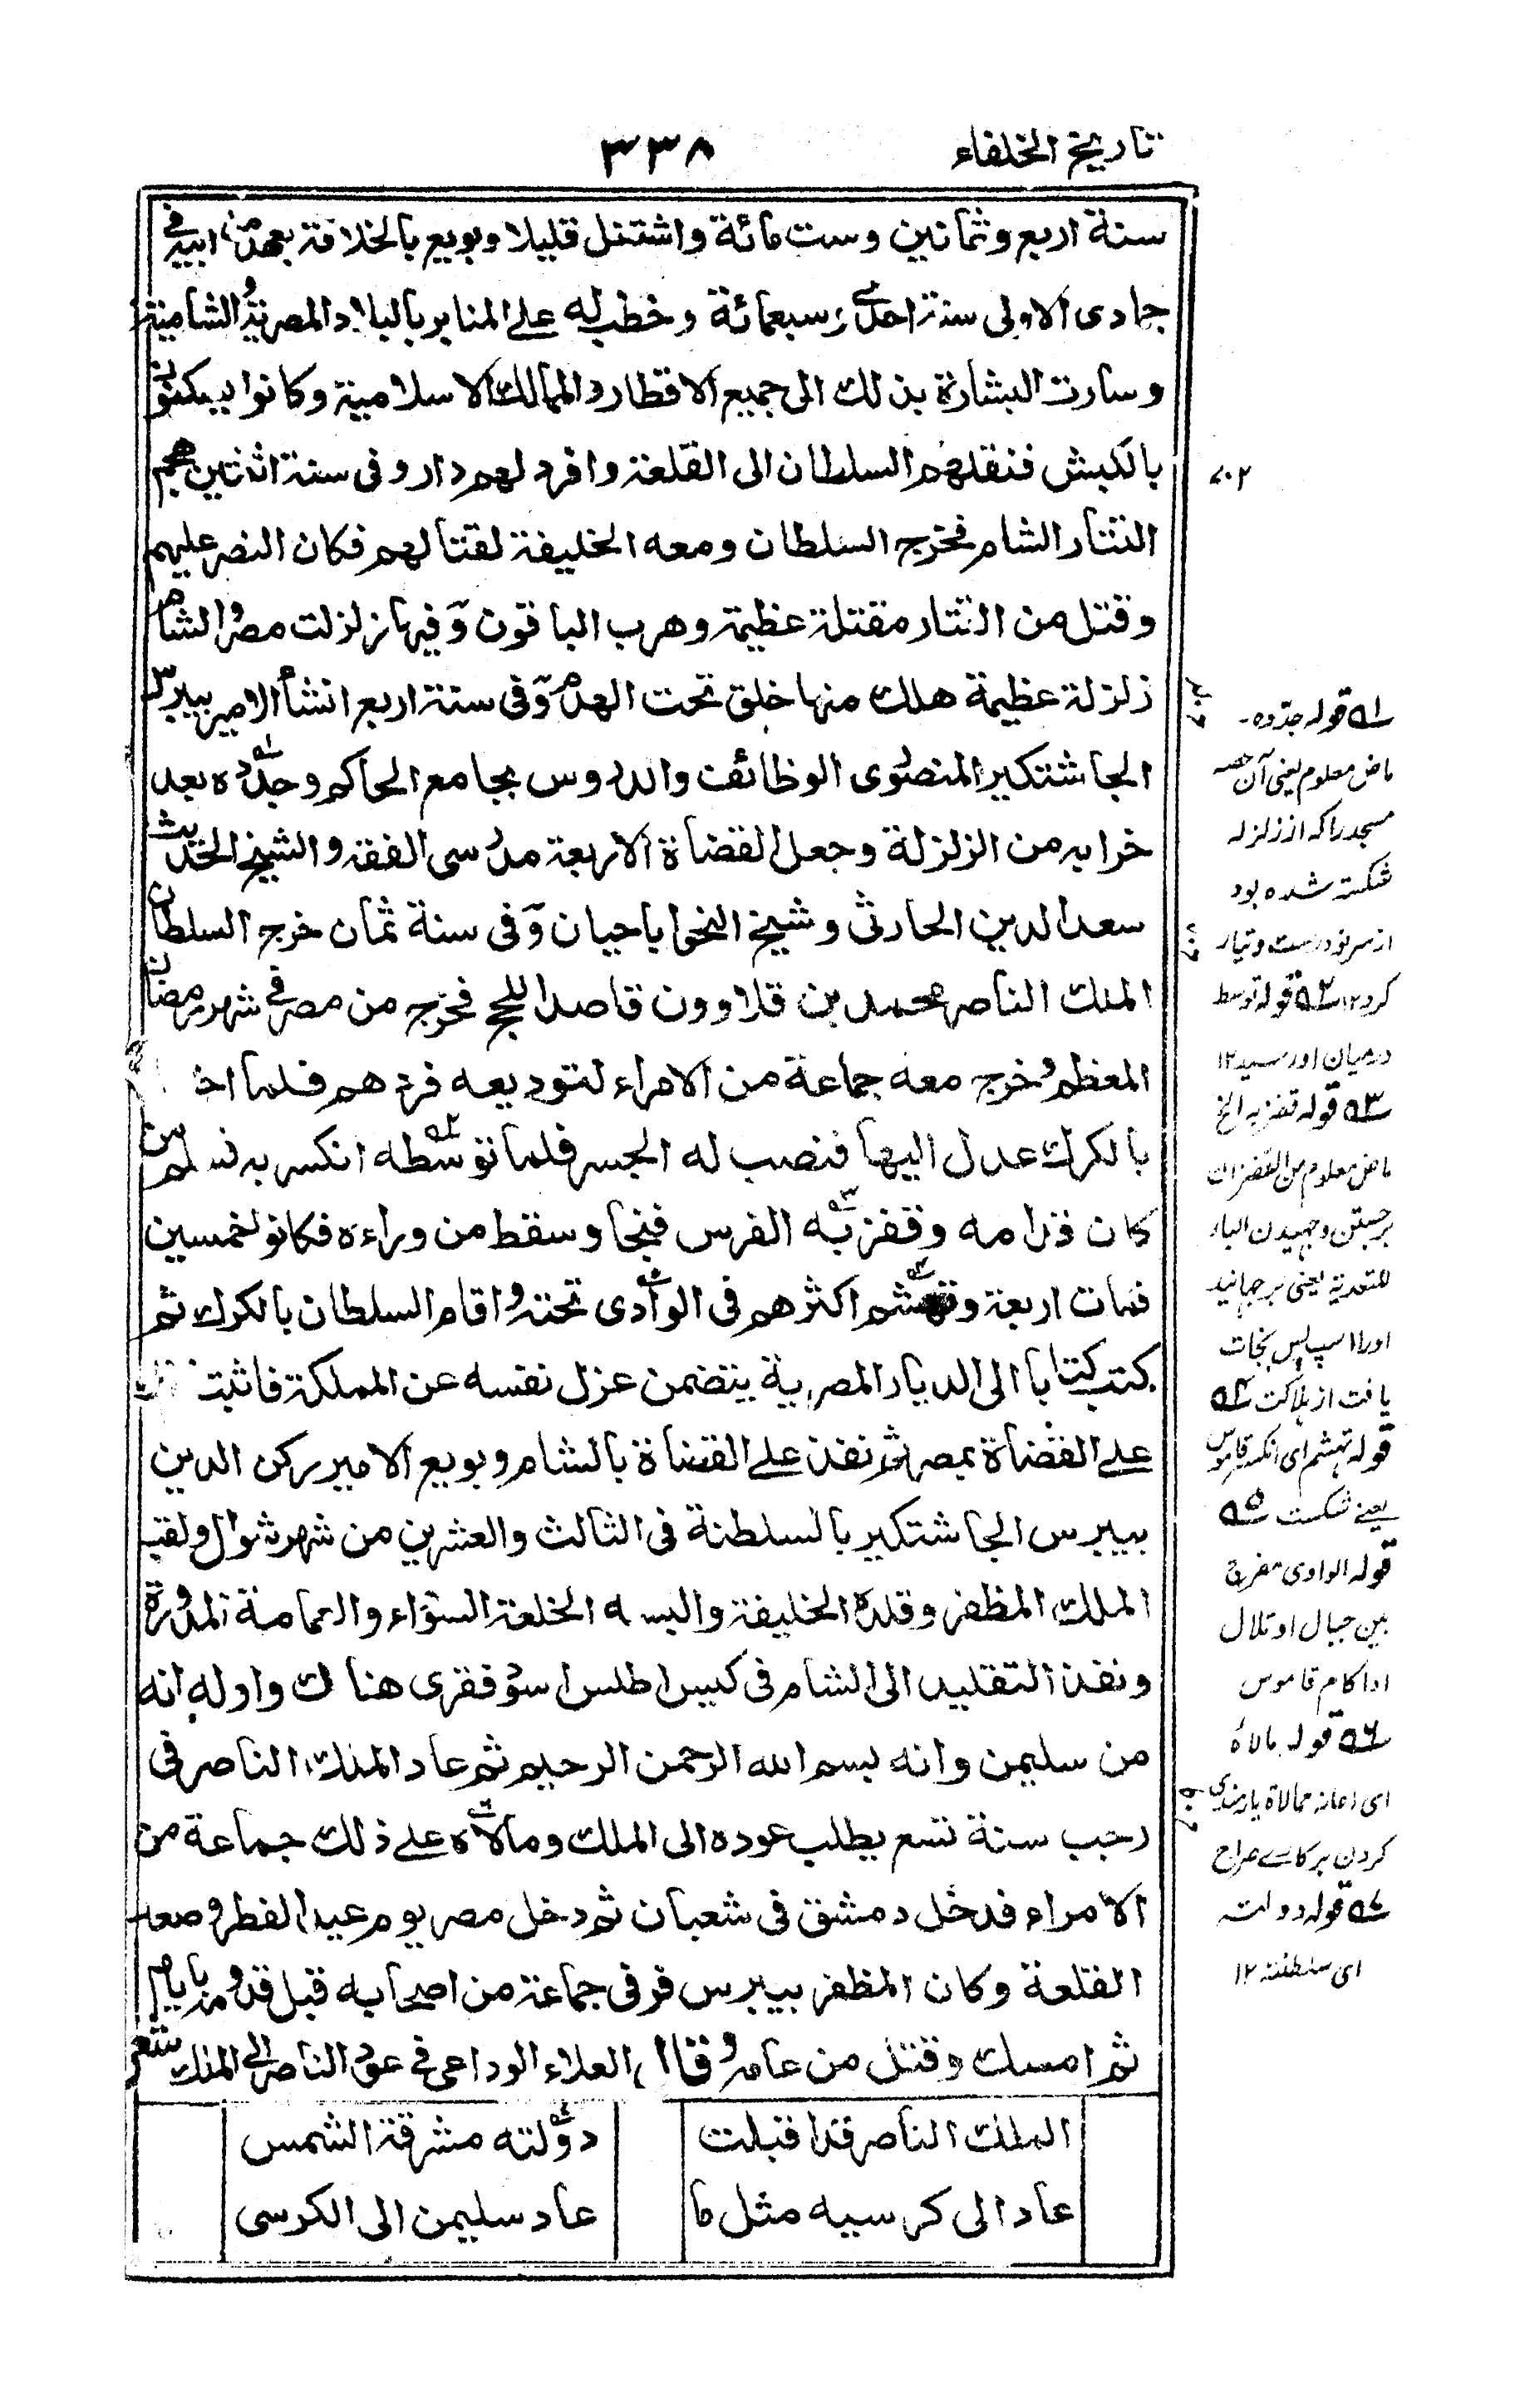 تاريخ الخلفاء
٣٣٨
سنة اربع وثمانين وست مائة واشتغل قليلا وبويع بالخلافة بعهد من ابيه في
جمادى الاولى سنة احدى وسبعمائة وخطب له على المنابر بالبلاد المصرية والشامية
وسارت البشارة بذلك الى جميع الاقطار والممالك الاسلامية وكانوا يسكنون
بالكبش فنقلهم السلطان الى القلعة وافرد لهم دار وفى سنة اثنتين هجم
التتار الشام فخرج السلطان ومعه الخليفة لقتالهم فكان النصر عليهم
وقتل من التتار مقتلة عظيمة وهرب الباقون وفيها زلزلت مصر والشام
زلزلة عظيمة هلك منها خلق تحت الهدم وفى سنة اربع انشأ الامير بيبرس
الجاشنكير المنصورى الوظائف والدروس بجامع الحاكم وجدده بعد
خرابه من الزلزلة وجعل القضاة الاربعة مدرسى الفقه والشيخ الحديث
سعد الدين الحارثى وشيخ النحو ابا حيان وفى سنة ثمان خرج السلطان
الملك الناصر محمد بن قلاوون قاصدا للحج فخرج من مصر في شهر رمضان
المعظم وخرج معه جماعة من الامراء لتوديعه فردهم فلما
بالكرك عدل اليها فنصب له الجسر فلما توسطه انكسر به فسلم من
كان قدامه وقفز به الفرس فنجا وسقط من وراءه فكانوا خمسين
فمات اربعة وتهشم اكثرهم فى الوادى تحته واقام السلطان بالكرك ثم
كتب كتابا الى الديار المصرية يتضمن عزل نفسه عن المملكة فاثبت
على القضاة بمصر ثم نفذ على القضاة بالشام وبويع الامير ركن الدين
بيبرس الجاشنكير بالسلطنة فى الثالث والعشرين من شهر شوال ولقب
الملك المظفر وقلده الخليفة والبسه الخلعة السوداء والعمامة المدورة
ونفذ التقليد الى الشام فى كيس اطلس اسود فقرى هناك واوله انه
من سليمن وانه بسم الله الرحمن الرحيم ثم عاد الملك الناصر فى
رجب سنة تسع يطلب عوده الى الملك ومالأه على ذلك جماعة من
الامراء فدخل دمشق فى شعبان ثم دخل مصر يوم عيد الفطر وصعد
القلعة وكان المظفر بيبرس فر فى جماعة من اصحابه قبل قدومه بايام
ثم امسك وقتل من عامه وقال العلاء الوداعى في عود الناصر الى الملك شعر
الملك الناصر قد اقبلت    دولته مشرقة الشمس
عاد الى كرسيه مثل ما    عاد سليمن الى الكرسى
٧٠٢
ـه١ قوله جدده-
ماض معلوم يعنى آن حصه
مسجد را كه از زلزله
شكسته شده بود
از سر نو درست وتيار
كرد ١٢ ـه٢ قوله توسط
درميان او رسيد ١٢
ـه٣ قوله قفز به الخ
ماض معلوم من القفزان
برجستن وجهيدن الباء
للتعدية يعنى برجهانيد
اورا اسپ پس نجات
يافت از هلاكت ـه٤
قوله تهشم اى انكسر قاموس
يعنے شكست ـه٥
قوله الوادى مفرج
بين جبال او تلال
او اكام قاموس
ـه٦ قوله مالأه
اى اعانه ممالاة يارمندى
كردن بر كارے صراح
ـه٧ قوله دولته
اى سلطنته ١٢